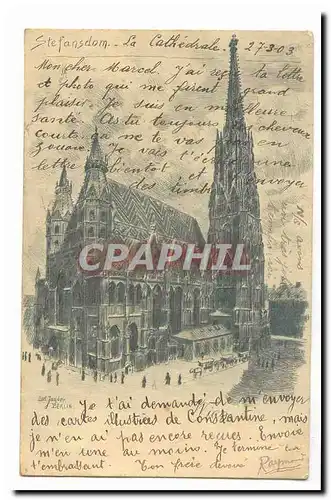 Stefansdom. La Cathédrale. 27-3-03
Mon cher Marcel. J'ai reçu ta lettre
et photo qui me firent grand
plaisir. Je suis en meilleure
santé. As tu toujours cheveux
courts ça ne te va pas en
zouave. Je vais t'écrire une
lettre bientôt et envoya
des timb
CPARAMA
BERLIN.
Je t'ai demandé de m'envoyer
des cartes illustrées de Constantine, mais
je n'en ai pas encore reçues. Envoie
m'en une au moins. Je termine en
t'embrassant. Ton frère dévoué Raymond